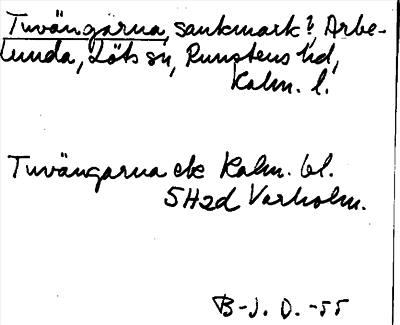 Tuvängarna, sankmark?, Arbe-
lunda, Löts sn, Runstens hd,
Kalm. l.
Tuvängarna ek Kalm. bl.
5H2d Varholm.
B-J. D. -55